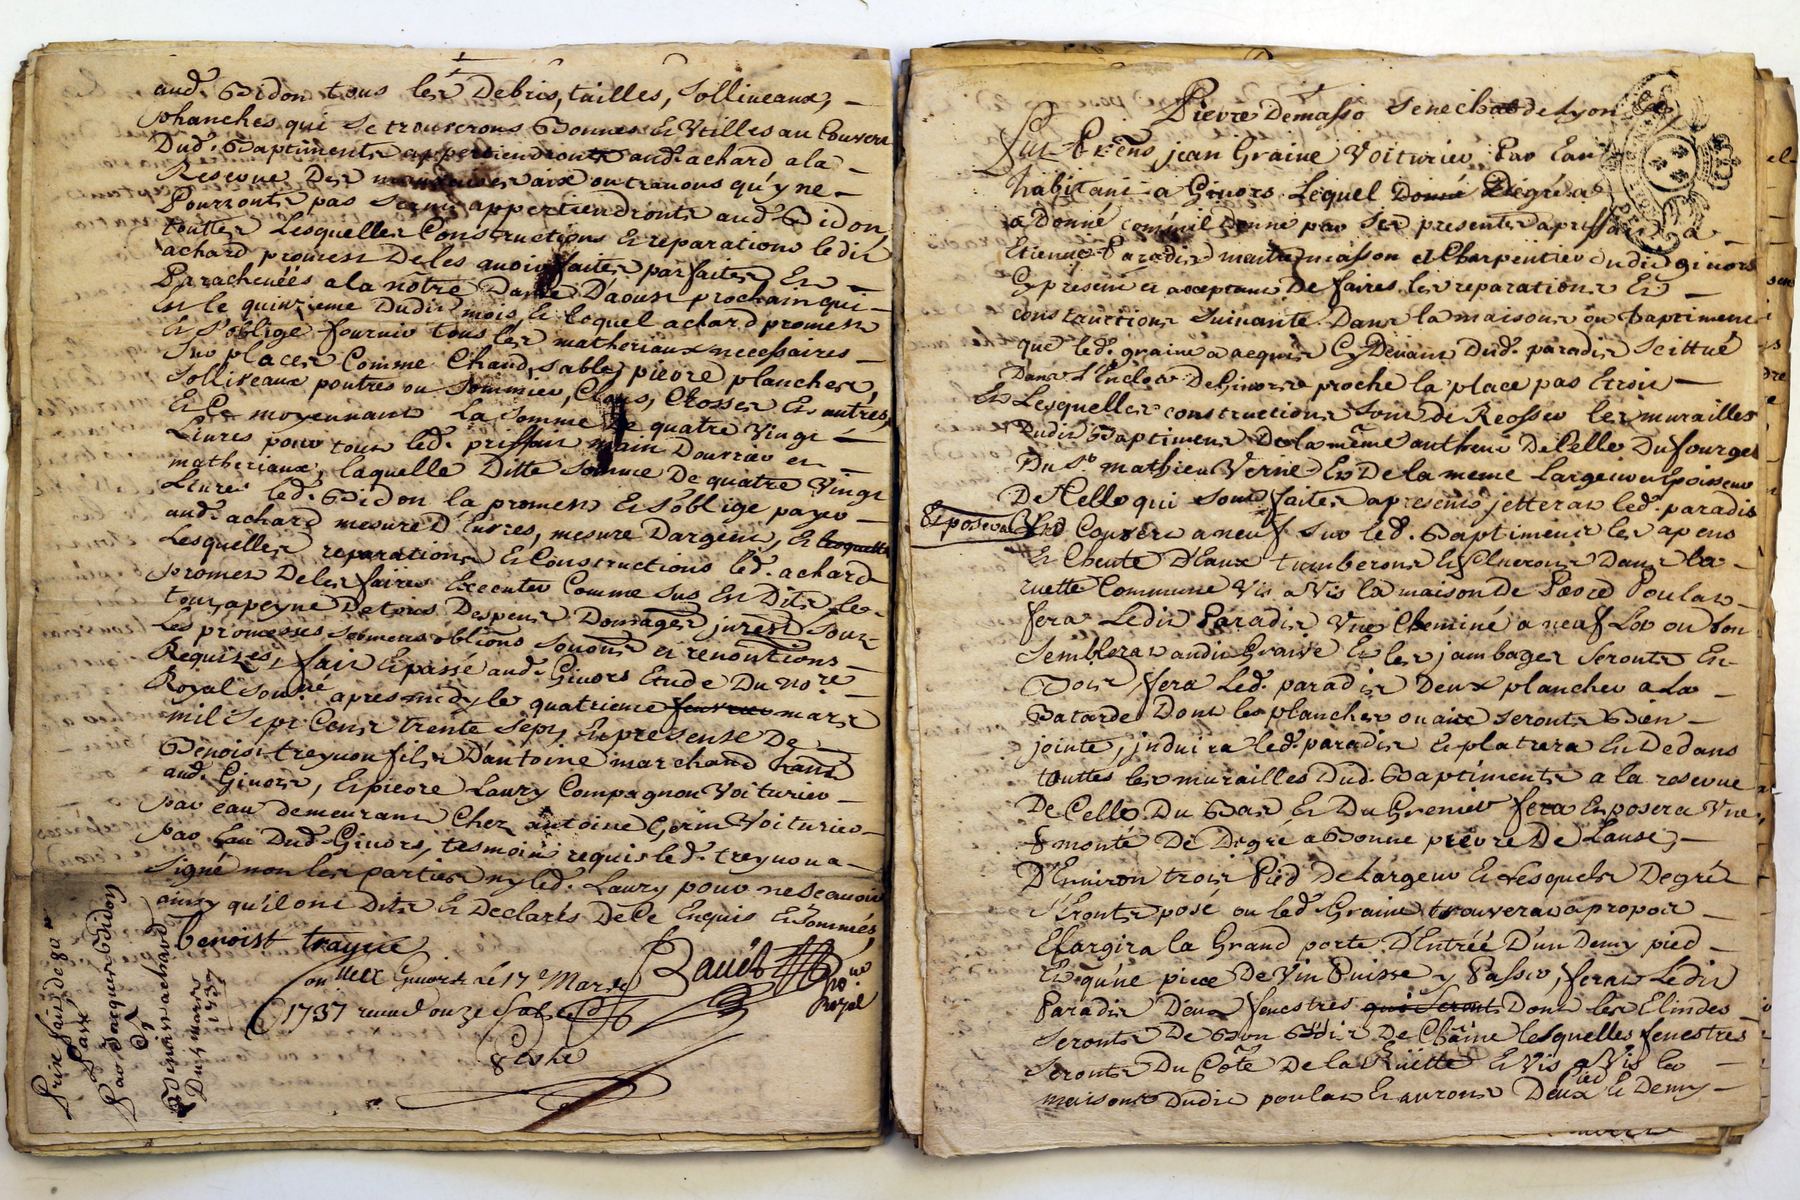 aud. Bidon tous les Debris, tailles, solliveaux,
phanches qui se trouverons Bonnes et Utilles au Couvert
Dud. Baptiments appertiendronts aud. achard a la
Reserve Des aix ou travons qu'y ne
Pourronts pas servir appertiendronts aud. Bidon,
touttes Lesquelles Constructions et reparations ledit
achard promest De les avoir faites parfaites Et
Parachevéés a la nôtre Dame D'aoust prochain qui
est le quinzieme Dudit mois, et lequel achard promest
Et s'oblige fournir tous les matheriaux necessaires
sur places Comme Chaud, sable, pierre plancher,
solliveaux poutres ou sommier, Clous, Crosses Et autres,
Et Ce moyennant La somme De quatre Vingt
Livres pour tout led. prisfait main Douvrier et
matheriaux, laquelle Ditte somme De quatre Vingt
Livres led. Bidon la promest Et s'oblige payer
aud. achard mesure D'Euvres, mesure Dargent, Et lesquelles
Lesquelles reparations Et Constructions led. achard
promest De les faires Executer Comme sus Est Dit, le
tout apeyne De tous Despens Domages jurent sour
les promesses soumens oblions sounons et renontions
Requises, fait Et passé aud. Givors Etude Du No.re
Royal sousné apres midy le quatrieme fevrier mars
mil sept Cent trente sept, En presense De
Benoist treynon fils D'antoine marchand
aud. Givors, Et pierre Laury Compagnon Voiturier
par eau demeurant Chez antoine Gerin Voiturier
par Eau Dud. Givors, tesmoins requis led. treynon a
signé non les parties ny led. Laury pour ne scavoir
ainsy qu'il ont Dits Et Declarés De Ce Enquis Et sommés,
benoist traynee
Con.llee Givors Le 17e Mars
1737 receud onze sols
Royal
Prixfait de 80 ll
Par Jacques Bidon
à
Benoist achard
Du 4 mars
1737
Pierre Demasso Senechal de Lyon
jean Graine Voiturier Par Eau
habitant a Givors Lequel Donné Dégré a
a Donné com'il Donne par Ses presentes a prisfait a
Etienne Paradis maitre masson et Charpentier dudit givors
Cy present et acceptant De faires les reparations Et
constructions suivante Dans la maisons ou Baptiment
que led. graine a acquis Cy Devant Dud. paradis scittué
Dans L'Enclos De Givors proche la place pas Etroit
Et Lesquelles constructions sont de Reosser les murailles
Dudit Baptiment De la même autheur De Celle Du fourges
Du Sr mathieu Verne Et De la meme Largeur et Epoisseur
De Celle qui sont faites apresent jetterat led. paradis
Et posera Couvert a neuf sur led. Baptiment les apens
Et Cheute D'Eaux tumberont Et sCluerons Dans la
ruette Commune Vis a Vis la maison De Poulat
fera Ledit Paradis Une Cheminé a neuf Lor ou bon
semblerat audit Graine Et les jambages seronts En
Bois, fera Led. paradis Deux plancher a La
Batarde Dont les plancher ou aix seronts Bien
jointe, jnduira led. paradis Et platrera En Dedans
touttes les murailles Dud. Baptiments a la reserve
De Celle Du Bas Et Du Grenier fera Et posera Une
monté De Degre a Bonne pierre De Lause,
D'Environ trois Pied De Largeur Et Lesquels Degrés
seronts posé ou led. Graine trouverat apropos
Elargira la Grand porte D'Entréé D'un Demy pied
En qu'ne piece De Vin Puisse y Passer, ferat Ledit
Paradis Deux fenestres qui seront Dont les Elindes
seronts De Bon Bois De Chaine lesquelles fenestres
seronts Du Côté De la Ruette Et Vis a Vis la
maisons Dudit poulat Et auront Deux pied Et Demy